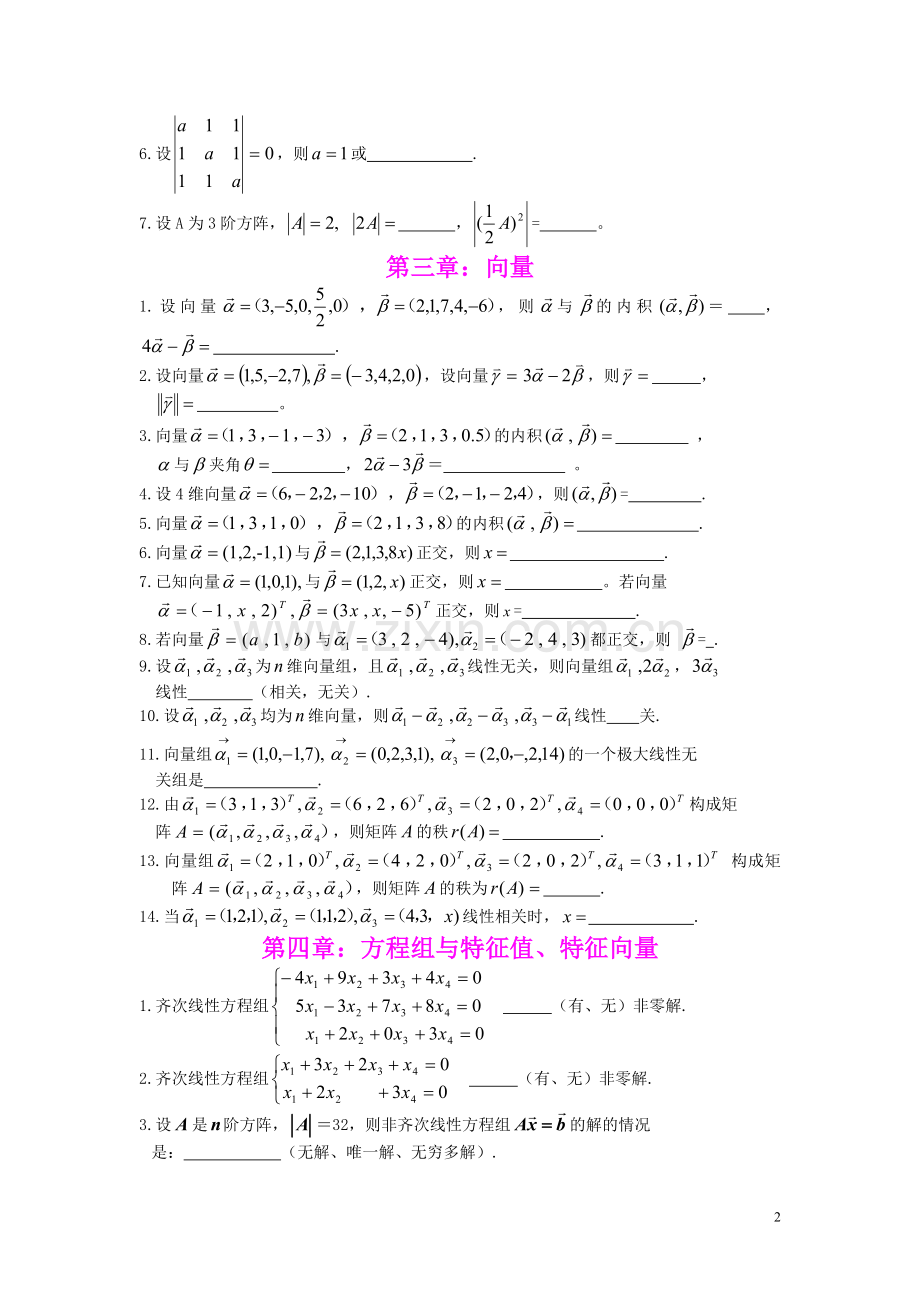 6.设|a 1 1; 1 a 1; 1 1 a|=0,则a=1或_____________.
7.设A为3阶方阵,|A|=2, |2A|=_______,|(1/2 A)²|=_______。
第三章:向量
1.设向量α⃗=(3,−5,0,5/2,0),β⃗=(2,1,7,4,−6),则α⃗与β⃗的内积(α⃗,β⃗)=____,
4α⃗−β⃗=_______________.
2.设向量α⃗=(1,5,−2,7),β⃗=(−3,4,2,0),设向量γ⃗=3α⃗−2β⃗,则γ⃗=______,
‖γ⃗‖=__________。
3.向量α⃗=(1,3,−1,−3),β⃗=(2,1,3,0.5)的内积(α⃗,β⃗)=_________,
α⃗与β⃗夹角θ=_________,2α⃗−3β⃗=_______________。
4.设4维向量α⃗=(6,−2,2,−10),β⃗=(2,−1,−2,4),则(α⃗,β⃗)=_________.
5.向量α⃗=(1,3,1,0),β⃗=(2,1,3,8)的内积(α⃗,β⃗)=_______________.
6.向量α⃗=(1,2,-1,1)与β⃗=(2,1,3,8x)正交,则x=___________________.
7.已知向量α⃗=(1,0,1),与β⃗=(1,2,x)正交,则x=____________。若向量
α⃗=(−1,x,2)ᵀ,β⃗=(3x,x,−5)ᵀ正交,则x=______________.
8.若向量β⃗=(a,1,b)与α⃗₁=(3,2,−4),α⃗₂=(−2,4,3)都正交,则 β⃗=_.
9.设α⃗₁,α⃗₂,α⃗₃为n维向量组,且α⃗₁,α⃗₂,α⃗₃线性无关,则向量组α⃗₁,2α⃗₂,3α⃗₃
线性________(相关,无关).
10.设α⃗₁,α⃗₂,α⃗₃均为n维向量,则α⃗₁−α⃗₂,α⃗₂−α⃗₃,α⃗₃−α⃗₁线性____关.
11.向量组α⃗₁=(1,0,−1,7), α⃗₂=(0,2,3,1), α⃗₃=(2,0,−,2,14)的一个极大线性无
关组是______________.
12.由α⃗₁=(3,1,3)ᵀ,α⃗₂=(6,2,6)ᵀ,α⃗₃=(2,0,2)ᵀ,α⃗₄=(0,0,0)ᵀ构成矩
阵A=(α⃗₁,α⃗₂,α⃗₃,α⃗₄),则矩阵A的秩r(A)=____________.
13.向量组α⃗₁=(2,1,0)ᵀ,α⃗₂=(4,2,0)ᵀ,α⃗₃=(2,0,2)ᵀ,α⃗₄=(3,1,1)ᵀ 构成矩
阵A=(α⃗₁,α⃗₂,α⃗₃,α⃗₄),则矩阵A的秩为r(A)=_______.
14.当α⃗₁=(1,2,1),α⃗₂=(1,1,2),α⃗₃=(4,3,x)线性相关时,x=_____________.
第四章:方程组与特征值、特征向量
1.齐次线性方程组{−4x₁+9x₂+3x₃+4x₄=0; 5x₁−3x₂+7x₃+8x₄=0; x₁+2x₂+0x₃+3x₄=0 ______(有、无)非零解.
2.齐次线性方程组{x₁+3x₂+2x₃+x₄=0; x₁+2x₂ +3x₄=0 ______(有、无)非零解.
3.设A是n阶方阵,|A|=32,则非齐次线性方程组Ax⃗=b⃗的解的情况
是:____________(无解、唯一解、无穷多解).
www.zixin.com.cn
2